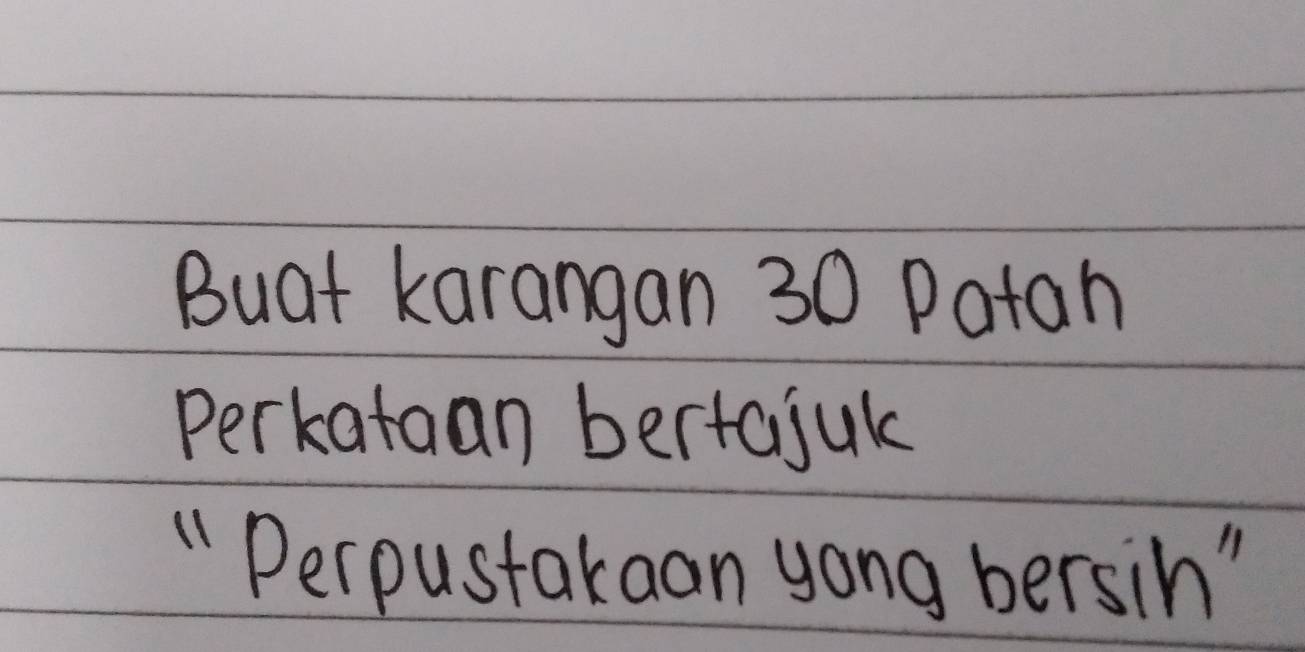 Buat karangan 30 Patah
Perkataan bertajuk
"Perpustakaan yang bersih"